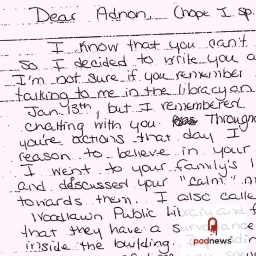 Dear Adnon, (hope I sp
I know that you can't
So I decided to write you a
I'm not sure if you remember
talking to me in the library on
Jan. 13th, but I remembered
chatting with you. Throughou
you're actions that day I
reason to believe in your
I went to your family's
and discussed your "calm"
towards them. I also calle
Woodlawn Public Library and
that they have a surveillance
inside the building.
podnews